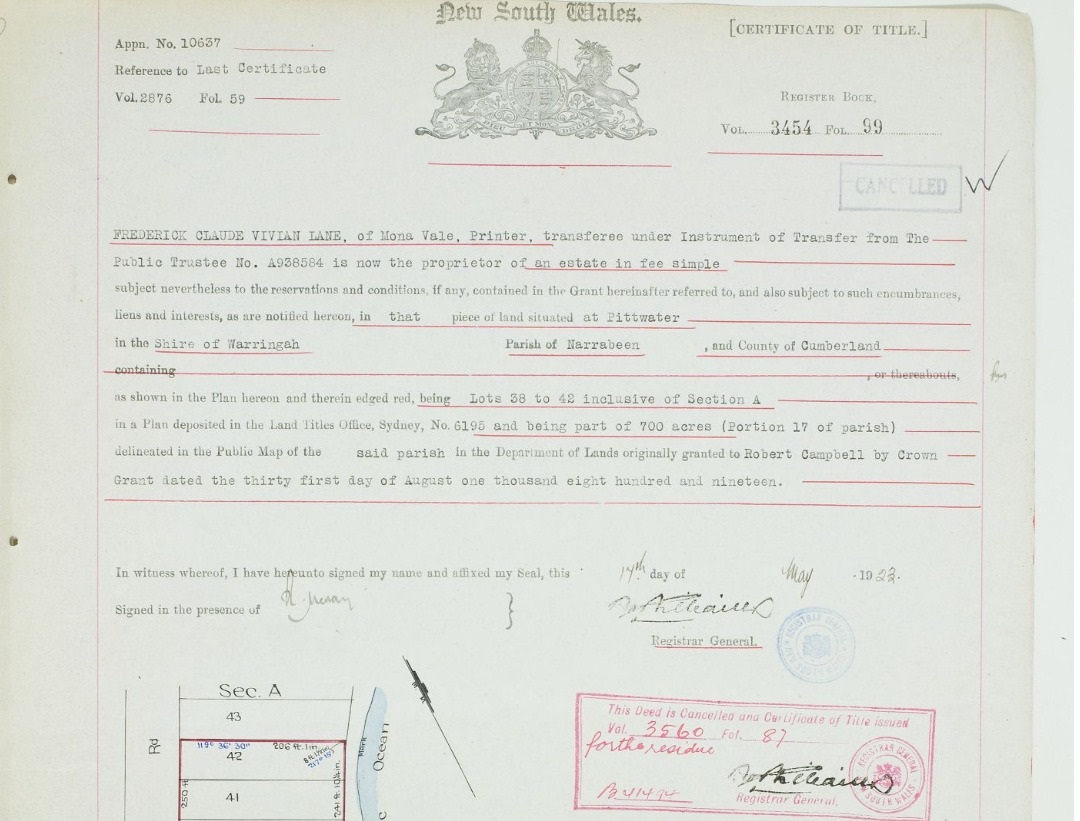 New South Wales.
[CERTIFICATE OF TITLE.]
Appn. No. 10637
Reference to Last Certificate
Vol. 2876 Fol. 59
REGISTER BOOK,
VOL. 3454 FOL. 99
CANCELLED
FREDERICK CLAUDE VIVIAN LANE, of Mona Vale, Printer, transferee under Instrument of Transfer from The
Public Trustee No. A938584 is now the proprietor of an estate in fee simple
subject nevertheless to the reservations and conditions, if any, contained in the Grant hereinafter referred to, and also subject to such encumbrances,
liens and interests, as are notified hereon, in that piece of land situated at Pittwater
in the Shire of Warringah Parish of Narrabeen , and County of Cumberland
containing , or thereabouts,
as shown in the Plan hereon and therein edged red, being Lots 38 to 42 inclusive of Section A
in a Plan deposited in the Land Titles Office, Sydney, No. 6195 and being part of 700 acres (Portion 17 of parish)
delineated in the Public Map of the said parish in the Department of Lands originally granted to Robert Campbell by Crown
Grant dated the thirty first day of August one thousand eight hundred and nineteen.
In witness whereof, I have hereunto signed my name and affixed my Seal, this 17th day of May 1923.
Signed in the presence of
Registrar General.
Sec. A
43
Rd
119° 36' 30" 206 ft. 1 in.
42
41
250 ft
Ocean
This Deed is Cancelled and Certificate of Title issued
Vol. 3560 Fol. 87
for the residue
Registrar General.
REGISTRAR GENERAL
SOUTH WALES